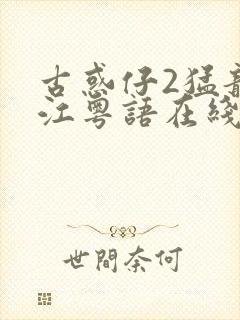 古惑仔2猛龍
江粵語在綫
世間奈何